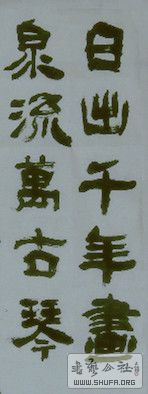 日出千年畫
泉流萬古琴
書藝公社
WWW.SHUFA.ORG